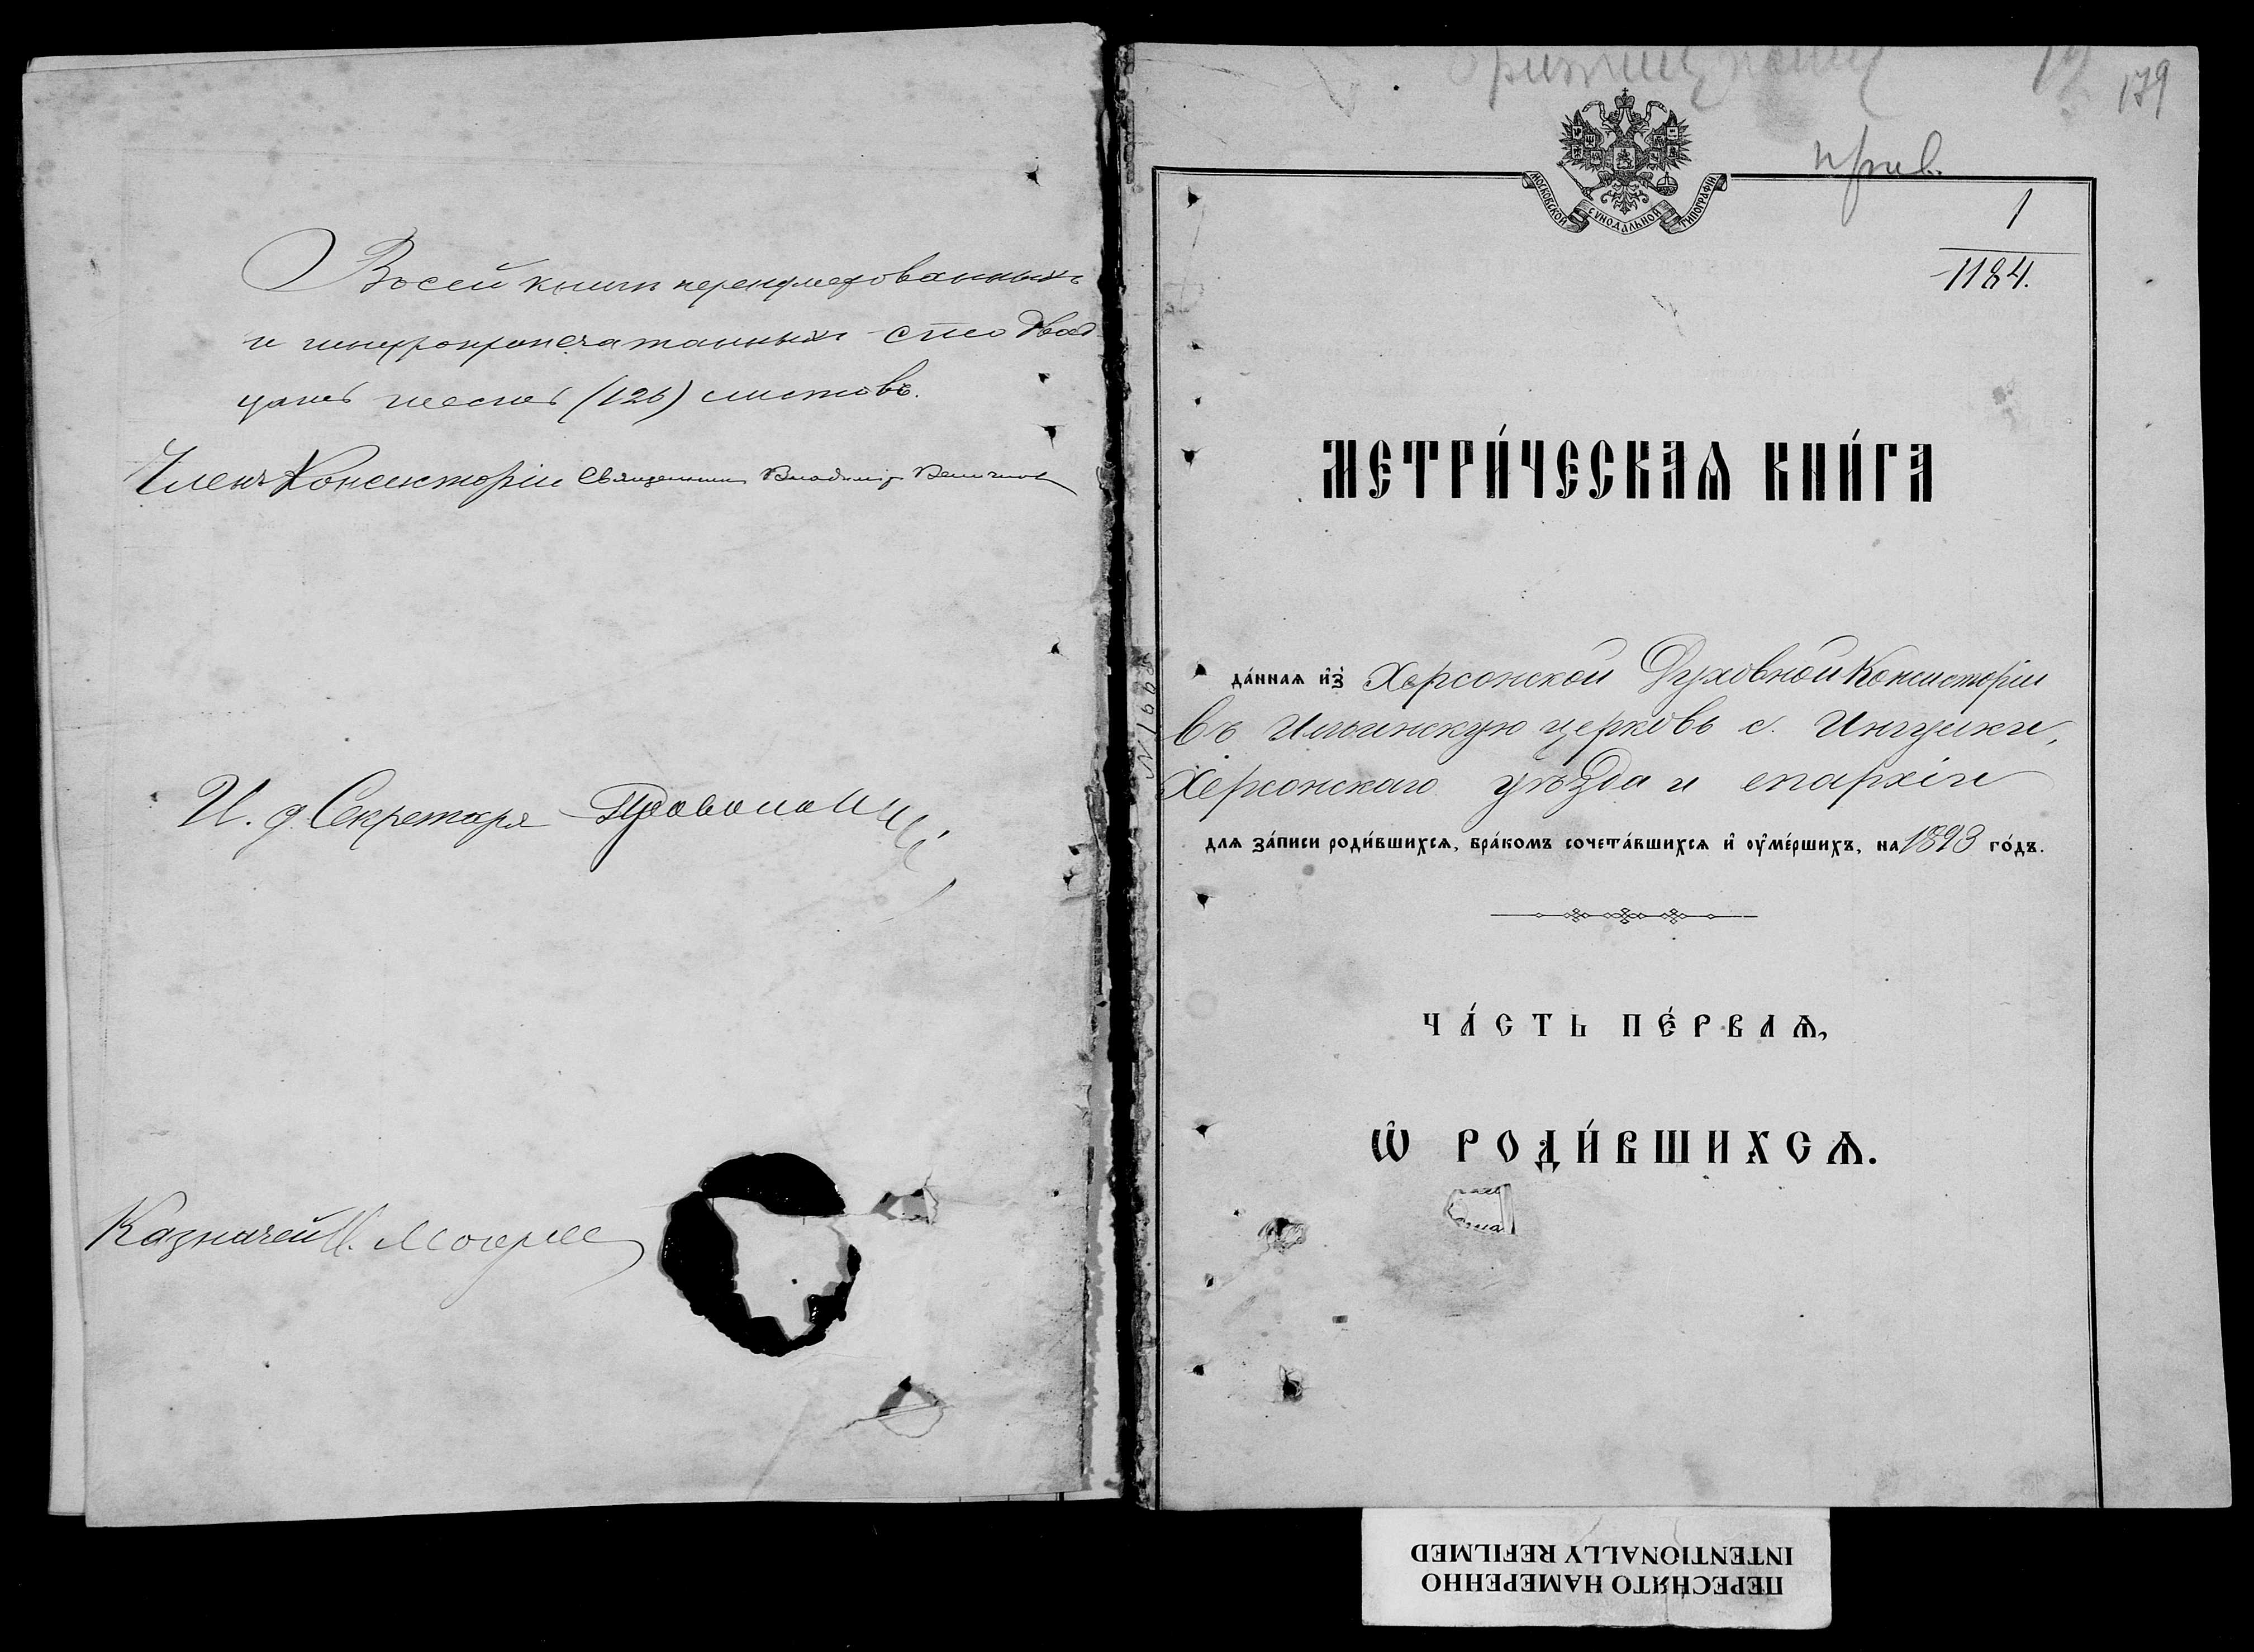 Въ сей книги перенумерованныхъ
и шнуропропечатанныхъ сто двад
цать шесть (126) листовъ.
Членъ Консисторіи Священникъ Владиміръ
И. д. Секретаря
Казначей
179
прив.
МОСКОВСКОЙ СѴНОДАЛЬНОЙ ТИПОГРАФІИ
1
1184.
МЕТРИ́ЧЕСКАѦ КНИ́ГА
да́ннаѧ и҆з̾ Херсонской Духовной Консисторіи
въ Ильинскую церковь с. Ингулки,
Херсонскаго уѣзда и епархіи
для за́писи роди́вшихсѧ, бра́комъ сочета́вшихсѧ и҆ оу҆ме́ршихъ, на 1893 го́дъ.
ЧА́СТЬ ПЕ́РВАѦ,
Ѡ҆ РОДИ́ВШИХСѦ.
ПЕРЕСНЯТО НАМЕРЕННО
INTENTIONALLY REFILMED